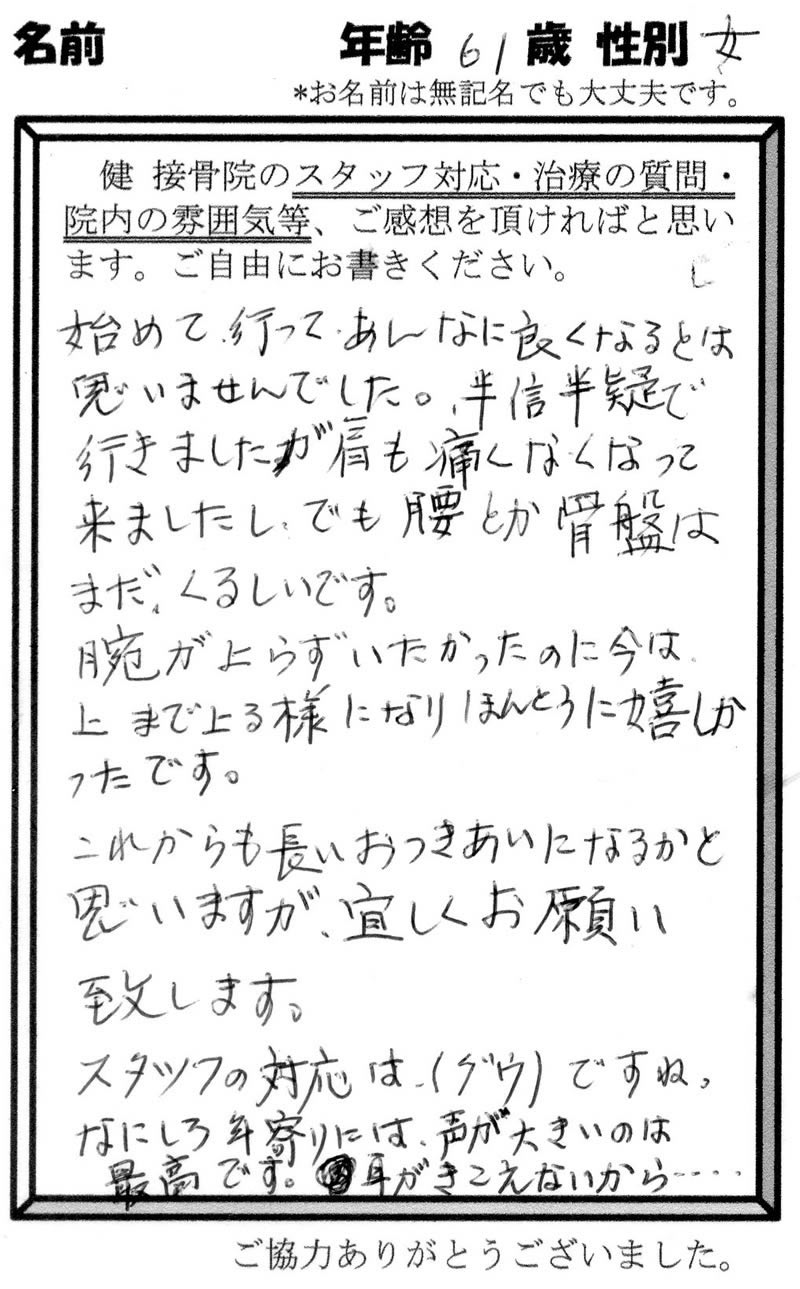 名前 年齢 61 歳 性別 女
*お名前は無記名でも大丈夫です。
健 接骨院のスタッフ対応・治療の質問・
院内の雰囲気等、ご感想を頂ければと思い
ます。ご自由にお書きください。
始めて、行って、あんなに良くなるとは
思いませんでした。半信半疑で
行きましたが肩も痛くなくなって
来ましたし、でも腰とか骨盤は
まだ、くるしいです。
腕が上らずいたかったのに今は、
上まで上る様になりほんとうに嬉しか
ったです。
これからも長いおつきあいになるかと
思いますが、宜しくお願い
致します。
スタッフの対応は、(グウ)ですね。
なにしろ年寄りには、声が大きいのは
最高です。耳がきこえないから‥‥
ご協力ありがとうございました。